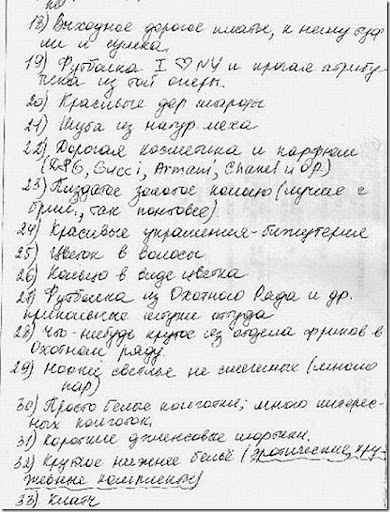 18) Выходное дорогое платье, к нему туф
ли и сумка.
19) Футболка I ♡ NY и прочая атрибу
тика из той оперы.
20) Красивые дор шарфы
21) Шуба из натур. меха
22) Дорогая косметика и парфюм
(D&G, Gucci, Armani, Chanel и др.)
23) Пиздатое золотое кольцо (лучше с
брил., так понтовее)
24) Красивые украшения-бижутерия
25) Цветок в волосы
26) Кольцо в виде цветка
27) Футболка из Охотного Ряда и др.
прикольные штуки оттуда
28) Что-нибудь крутое из отдела фриков в
Охотном ряду.
29) Носки светлые не смешные (много
пар)
30) Просто белые колготки; много интерес-
ных колготок,
31) Короткие джинсовые шортики.
32) Крутое нижнее бельё (эротические, кру-
жевные комплекты)
33) Клатч